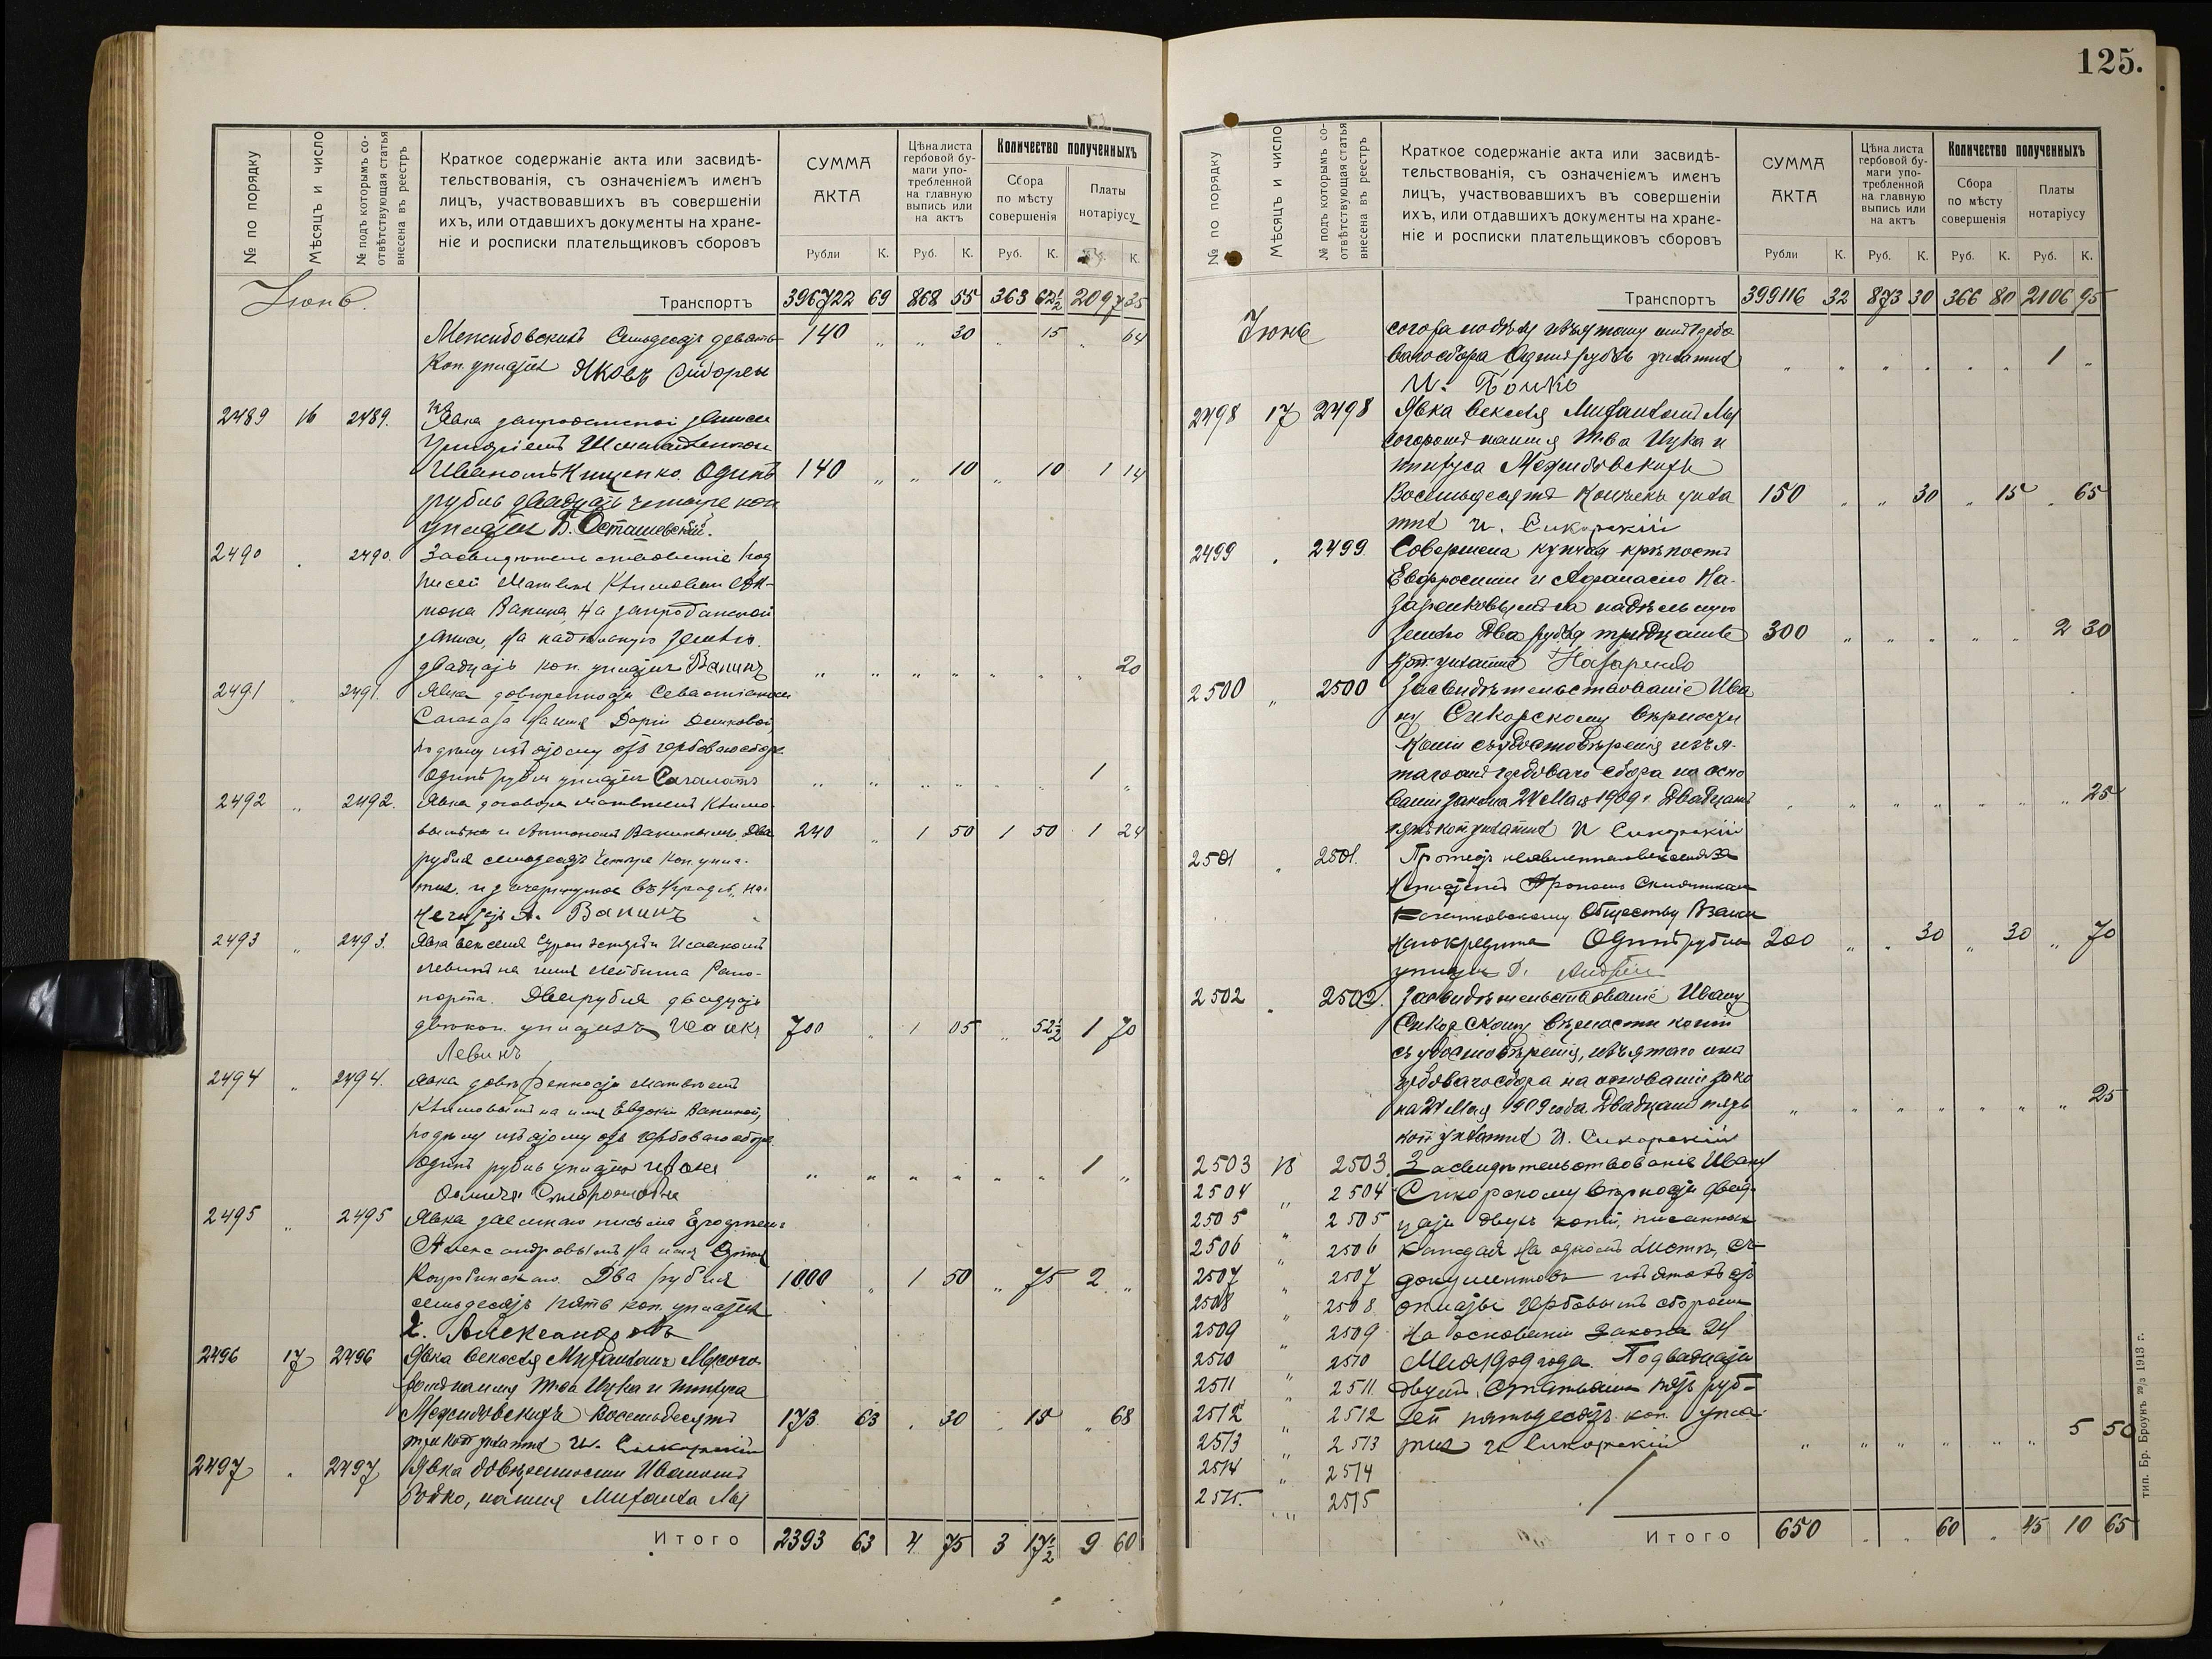 125.
№ по порядку
Мѣсяцъ и число
№ подъ которымъ со-
отвѣтствующая статья
внесена въ реестръ
Краткое содержаніе акта или засвидѣ-
тельствованія, съ означеніемъ именъ
лицъ, участвовавшихъ въ совершеніи
ихъ, или отдавшихъ документы на хране-
ніе и росписки плательщиковъ сборовъ
СУММА
АКТА
Цѣна листа
гербовой бу-
маги упо-
требленной
на главную
выпись или
на актъ
Количество полученныхъ
Сбора
по мѣсту
совершенія
Платы
нотаріусу
Рубли К. Руб. К. Руб. К. К.
Іюнь.
Транспортъ 396722 69 868 55 363 62½ 2097 35
Межибовскихъ Семьдесятъ девять 140 „ „ 30 „ 15 „ 64
Коп. уплатилъ Яковъ
2489 16 2489. Явка запродажной записи
Иваномъ Кищенко. Одинъ 140 „ „ 10 „ 10 1 14
рубль двадцать четыре коп
уплатилъ Б. Осташевскій.
2490 2490. под
писей Матвѣя Климова и Ан-
тона Ванина, на запродажной
записи, на надѣльную землю.
двадцать коп. уплатилъ Ванинъ „ „ „ „ „ „ „ 20
2491 „ 2491. Явка довѣренности
на имя Даріи
гербоваго сбора
Одинъ рубль уплатилъ „ „ „ „ „ „ 1 „
2492 „ 2492. Явка договора Матвѣемъ Климо-
вымъ и Антономъ Ванинымъ. Два 240 „ 1 50 1 50 1 24
рубля семьдесятъ четыре коп. упла-
тилъ. и зачеркнутое
не читать А. Ванинъ
2493 „ 2493. Явка векселя Исаакомъ
Левинъ на имя Рапо-
порта. Два рубля двадцать
коп. уплатилъ Исаакъ 700 „ 1 05 „ 52½ 1 70
Левинъ
2494 „ 2494. Явка довѣренности Матвѣемъ
Климовымъ на имя Евдокіи Ваниной,
гербоваго сбора
Одинъ рубль уплатилъ „ „ „ „ „ „ 1 „
2495 „ 2495 Явка заемнаго письма
Александровымъ на имя
Два рубля 1000 „ 1 50 „ 75 2 „
семьдесятъ пять коп. уплатилъ
Александровъ
2496 17 2496 Явка векселя Михаиломъ Лысого-
ромъ на имя Т-ва Ицка и
Межибовскихъ Восемьдесятъ 173 63 „ 30 „ 15 „ 68
три коп уплатилъ И. Сикорскій
2497 „ 2497 Явка довѣренности Иваномъ
Бойко, на имя Михаила Лы
Итого 2393 63 4 75 3 17½ 9 60
№ по порядку
Мѣсяцъ и число
№ подъ которымъ со-
отвѣтствующая статья
внесена въ реестръ
Краткое содержаніе акта или засвидѣ-
тельствованія, съ означеніемъ именъ
лицъ, участвовавшихъ въ совершеніи
ихъ, или отдавшихъ документы на хране-
ніе и росписки плательщиковъ сборовъ
СУММА
АКТА
Цѣна листа
гербовой бу-
маги упо-
требленной
на главную
выпись или
на актъ
Количество полученныхъ
Сбора
по мѣсту
совершенія
Платы
нотаріусу
Рубли К. Руб. К. Руб. К. Руб. К.
Транспортъ 399116 32 873 30 366 80 2106 95
Іюнь согора изъятому отъ гербо
ваго сбора Одинъ рубль уплатилъ „ „ „ „ „ „ 1 „
И. Бойко
2498 17 2498 Явка векселя Михаиломъ Лы
согоромъ на имя Т-ва Ицка и
Межибовскихъ
Восемьдесятъ копѣекъ упла 150 „ „ 30 „ 15 „ 65
тилъ И. Сикорскій
2499 „ 2499 Совершена купчая крѣпость
Евфросиніи и Афанасію На-
заренковымъ на надѣльную
землю Два рубля тридцать 300 „ „ „ „ „ 2 30
коп. уплатилъ Назаренко
2500 „ 2500 Засвидѣтельствованіе Ива
ну Сикорскому вѣрности
копіи съ удостовѣренія изъя-
таго отъ гербоваго сбора на осно
ваніи закона 24 Мая 1909 г. Двадцать „ „ „ „ „ „ „ 25
пять коп. уплатилъ И Сикорскій
2501 „ 2501. Протестъ векселя за
Обществу Взаим
наго кредита Одинъ рубль 200 „ „ 30 „ 30 „ 70
2502 „ 2502. Засвидѣтельствованіе Ивану
Сикорскому вѣрности копіи
съ удостовѣренія, изъятаго отъ
гербоваго сбора на основаніи зако
на 24 Мая 1909 года Двадцать пять „ „ „ „ „ „ „ 25
коп уплатилъ И. Сикорскій
2503 18 2503. Засвидѣтельствованіе Ивану
2504 „ 2504 Сикорскому вѣрности двад-
2505 „ 2505 цати двухъ копій, писанныхъ
2506 „ 2506 каждая на одномъ листѣ, съ
2507 „ 2507 документовъ изъятыхъ отъ
2508 „ 2508 оплаты гербовымъ сборомъ
2509 „ 2509 на основаніи Закона 24
2510 „ 2510 Мая 1909 года. По двадцати
2511 „ 2511. двумъ статьямъ пять руб-
2512 „ 2512 лей пятьдесятъ коп. упла-
2513 „ 2513 тилъ И Сикорскій „ „ „ „ „ „ 5 50
2514 „ 2514
2515. „ 2515
Итого 650 „ „ 60 „ 45 10 65
тип. Бр. Броунъ 29/3 1913 г.